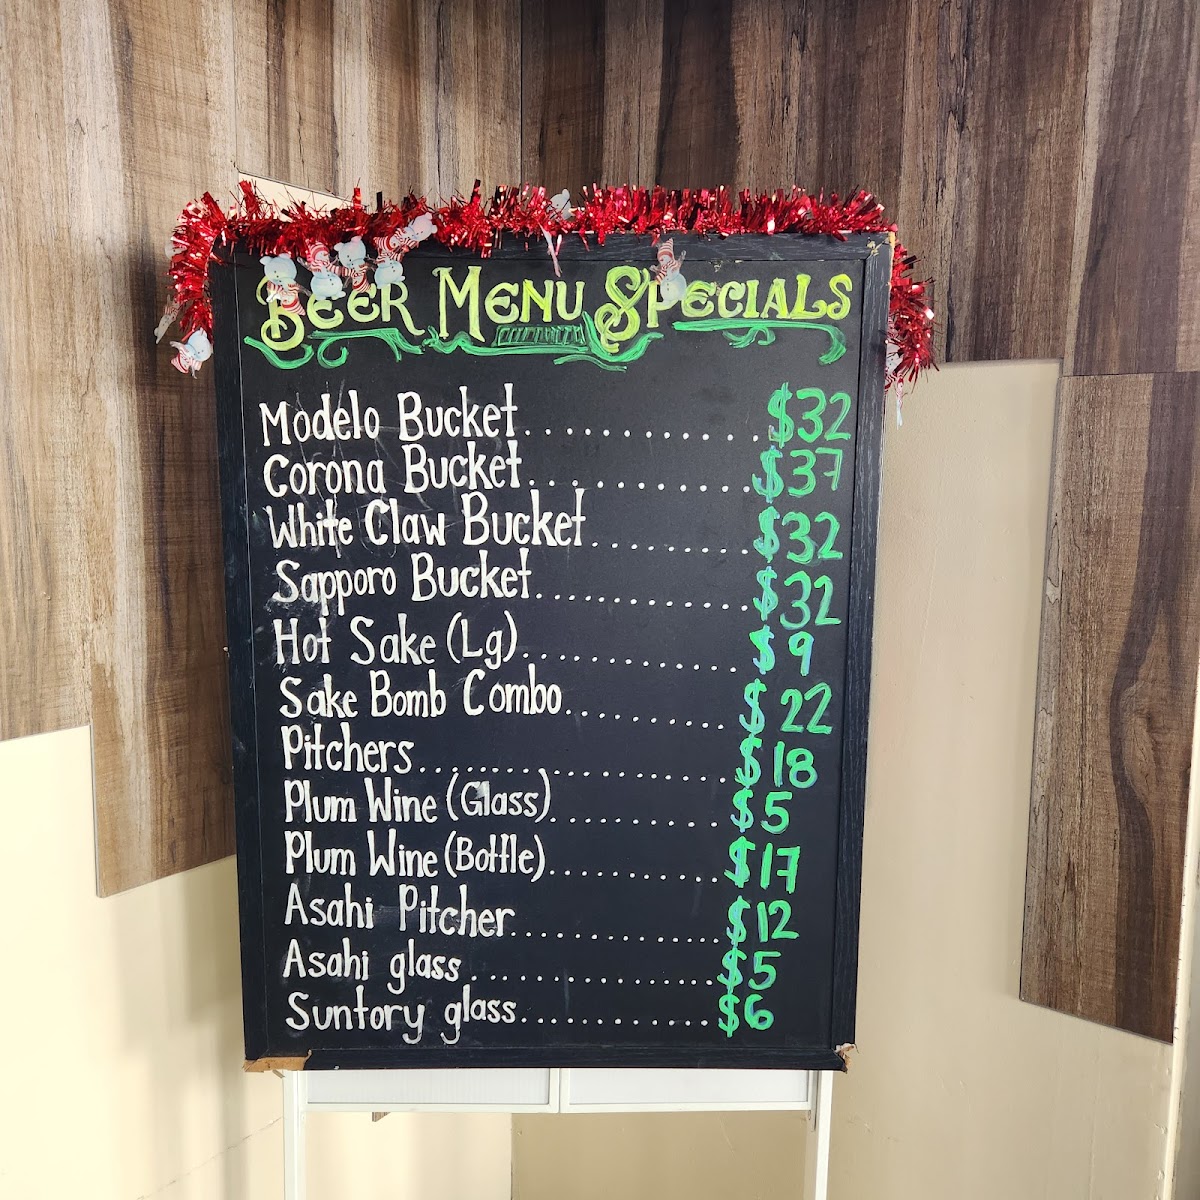 Beer Menu Specials
Modelo Bucket............$32
Corona Bucket...........$37
White Claw Bucket..........$32
Sapporo Bucket.............$32
Hot Sake (Lg).............$9
Sake Bomb Combo..........$22
Pitchers..................$18
Plum Wine (Glass)..........$5
Plum Wine (Bottle)...........$17
Asahi Pitcher.............$12
Asahi glass...............$5
Suntory glass............$6